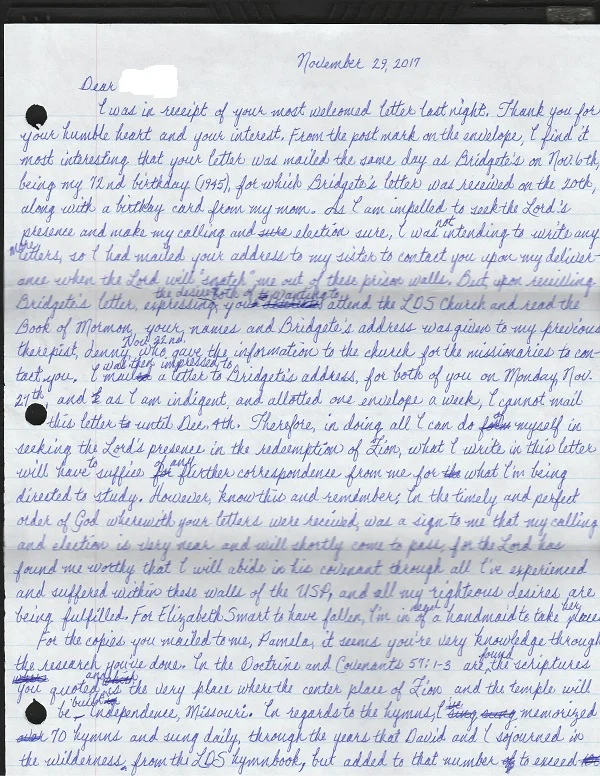 November 29, 2017
Dear
I was in receipt of your most welcomed letter last night. Thank you for
your humble heart and your interest. From the post mark on the envelope, I find it
most interesting that your letter was mailed the same day as Bridgete's on Nov. 6th,
being my 72nd birthday (1945), for which Bridgete's letter was received on the 20th,
along with a birthday card from my mom. As I am impelled to seek the Lord's
presence and make my calling and sure election sure, I was not intending to write any
more letters, so I had mailed your address to my sister to contact you upon my deliver-
ance when the Lord will "snatch" me out of these prison walls. But, upon receiving
Bridgete's letter, expressing the desire, both of you wanting to attend the LDS Church and read the
Book of Mormon, your names and Bridgete's address was given to my previous
therepist, Jenny, Nov. 22nd, who gave the information to the church for the missionaries to con-
tact you. I was then impressed to mail a letter to Bridgete's address, for both of you on Monday, Nov.
27th and as I am indigent, and allotted one envelope a week, I cannot mail
this letter until Dec. 4th. Therefore, in doing all I can do myself in
seeking the Lord's presence in the redemption of Zion, what I write in this letter
will have to suffice any further correspondence from me for what I'm being
directed to study. However, know this and remember; In the timely and perfect
order of God wherewith your letters were received, was a sign to me that my calling
and election is very near and will shortly come to pass, for the Lord has
found me worthy that I will abide in his covenant through all I've experienced
and suffered within these walls of the USP, and all my righteous desires are
being fulfilled. For Elizabeth Smart to have fallen, I'm in need of a handmaid to take her place.
For the copies you mailed to me, Pamela, it seems you're very knowledge through
the research you've done. In the Doctrine and Covenants 57:1-3 are found the scriptures
you quoted, and is the very place where the center place of Zion and the temple will
be built - Independence, Missouri. In regards to the hymns, I memorized
70 hymns and sung daily, through the years that David and I sojourned in
the wilderness, from the LDS hymnbook, but added to that number to exceed